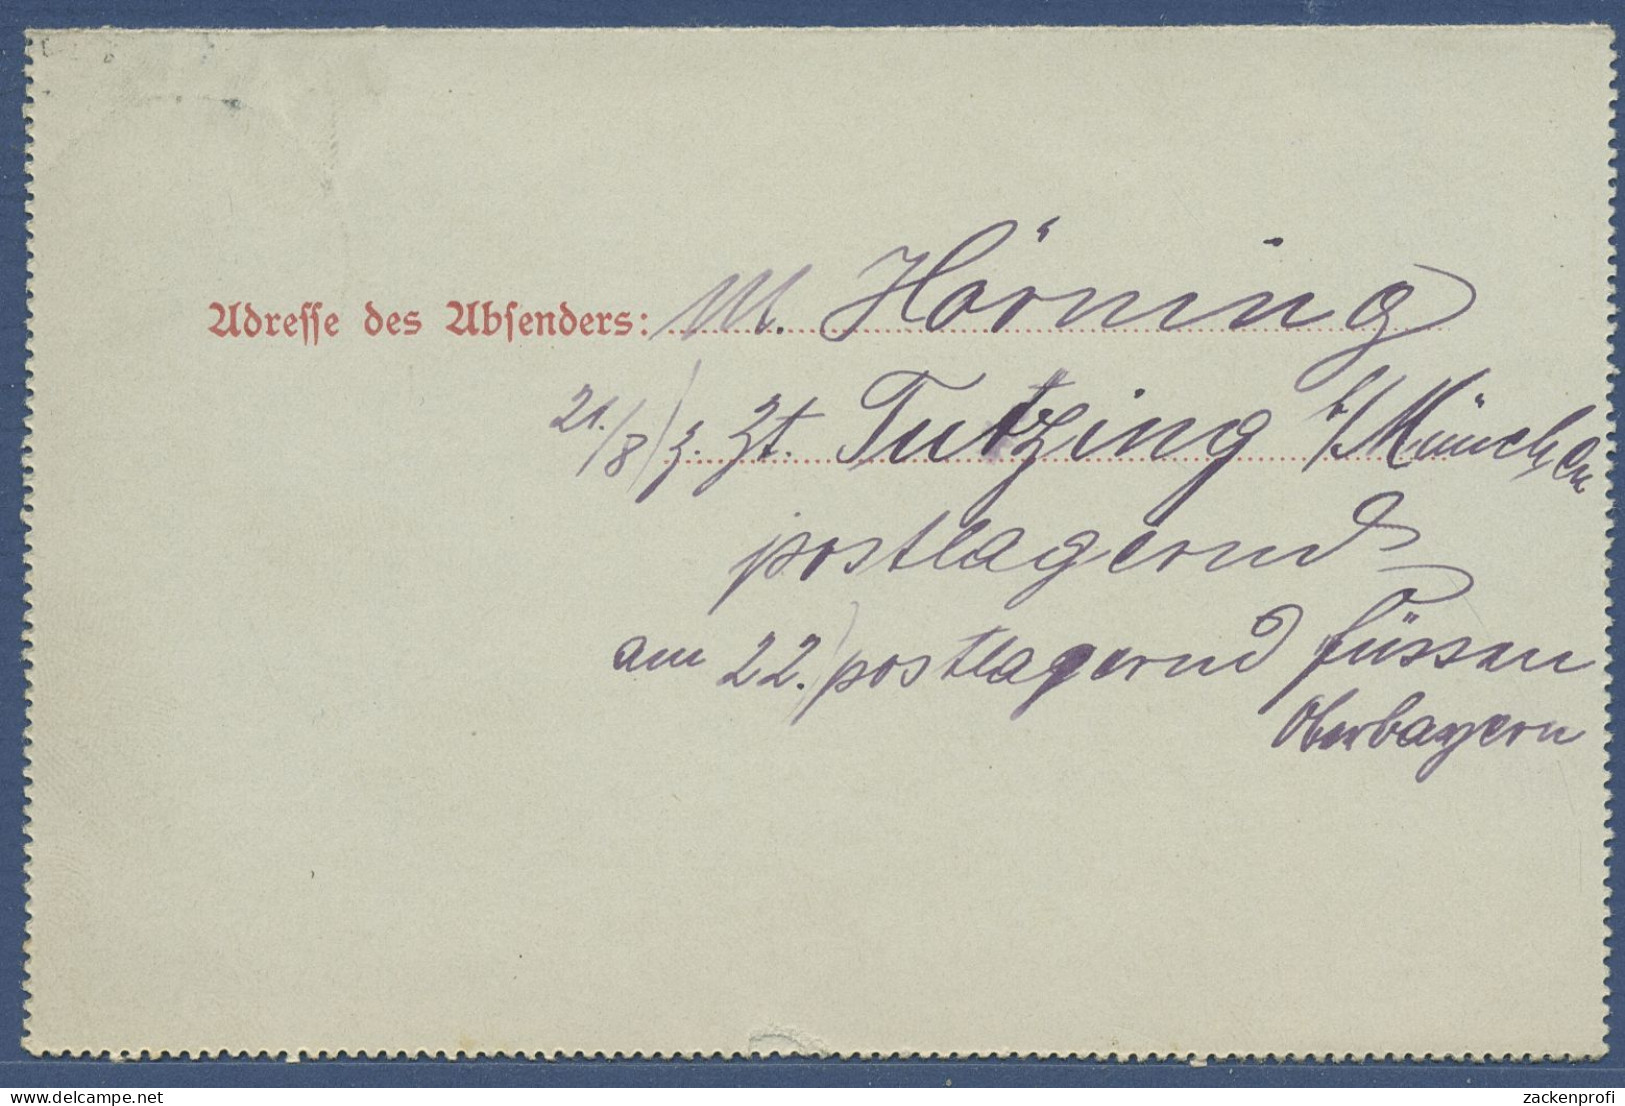 Adresse des Absenders: M. Hörning
21./8) z. Zt. Tutzing b/München
postlagernd
am 22.) postlagernd Füssen
Oberbayern
delcampe.net
zackenprofi